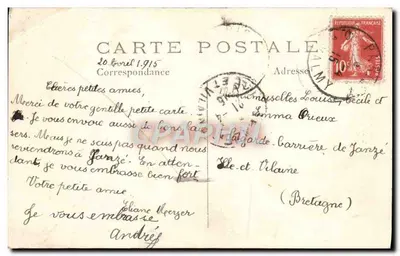 CARTE POSTALE
20 Avril 1915
Correspondance
Adresse
Chères petites amies,
Merci de votre gentille petite carte.
Je vous envoie aussi de bons bai
sers. Mais je ne sais pas quand nous
reviendrons à Janzé. En atten-
dant, je vous embrasse bien fort
Votre petite amie
Eliane
Je vous embrasse
André
moiselles Louise, Cécile et
Emma
garde-barrière de Janzé
Ille et Vilaine
(Bretagne)
10